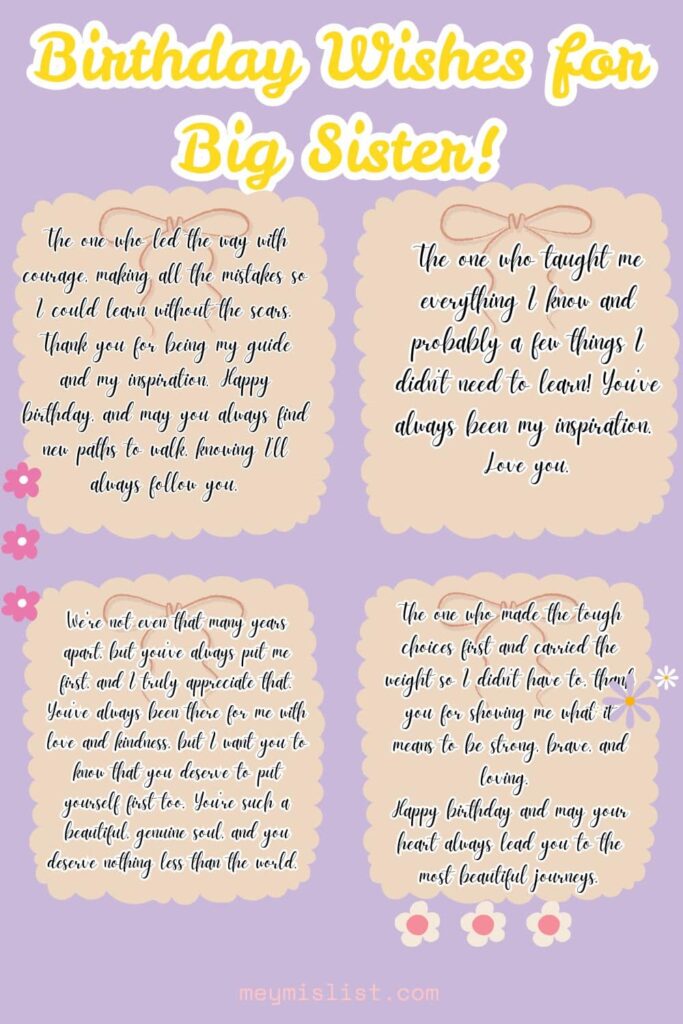 Birthday Wishes for
Big Sister!
The one who led the way with
courage, making all the mistakes so
I could learn without the scars.
Thank you for being my guide
and my inspiration. Happy
birthday, and may you always find
new paths to walk, knowing I'll
always follow you.
The one who taught me
everything I know and
probably a few things I
didn't need to learn! You've
always been my inspiration.
Love you.
We're not even that many years
apart, but you've always put me
first, and I truly appreciate that.
You've always been there for me with
love and kindness, but I want you to
know that you deserve to put
yourself first too. You're such a
beautiful, genuine soul, and you
deserve nothing less than the world.
The one who made the tough
choices first and carried the
weight so I didn't have to, thank
you for showing me what it
means to be strong, brave, and
loving.
Happy birthday and may your
heart always lead you to the
most beautiful journeys.
meymislist.com